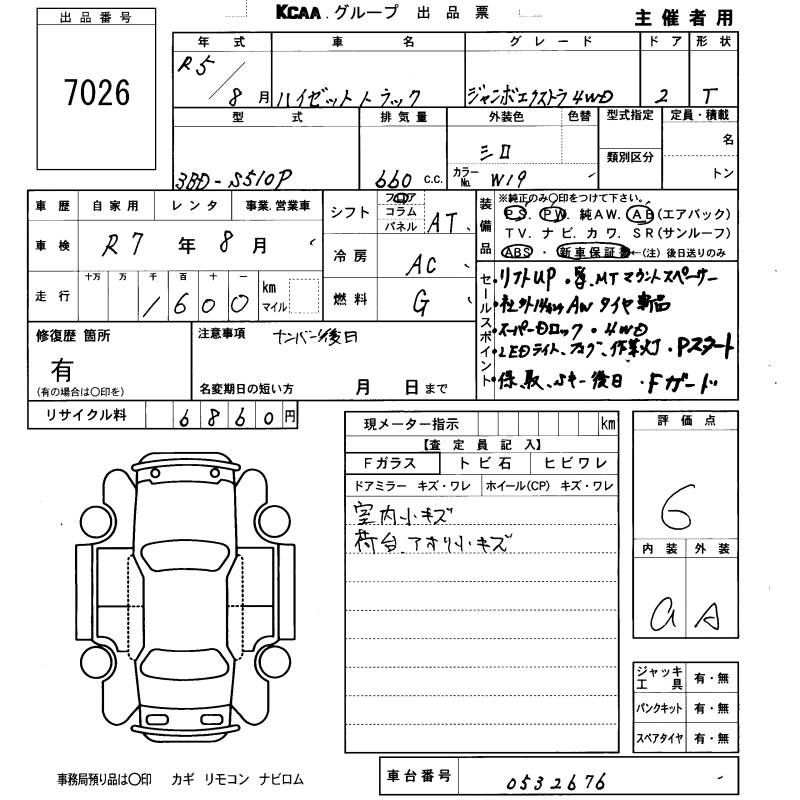 KCAA.グループ 出品票
主催者用
出品番号
7026
年式 車名 グレード ドア 形状
R5/8月 ハイゼットトラック ジャンボエクストラ4WD 2 T
型式 排気量 外装色 色替 型式指定 定員・積載
3BD-S510P 660 c.c. シロ 類別区分 名
カラーNo. W19 トン
車歴 自家用 レンタ 事業.営業車
車検 R7年8月
走行 十万 万 千 百 十 一
1600 km マイル
シフト フロア コラム パネル AT
冷房 AC
燃料 G
装備品
※純正のみ○印をつけて下さい。
PS. PW. 純AW. AB(エアバック)
TV. ナビ. カワ. SR(サンルーフ)
ABS・新車保証書←(注)後日送りのみ
セールスポイント
・リフトUP ・ MTマウントスペーサー
・社外14インチAW タイヤ新品
・スーパーDロック・4WD
・LEDライト、フォグ、作業灯・Pスタート
・保、取、Sキー後日・Fガード
修復歴 箇所
有
(有の場合は○印を)
注意事項 ナンバー後日
名変期日の短い方 月 日まで
リサイクル料 6860円
現メーター指示 km
【査定員記入】
Fガラス トビ石 ヒビワレ
ドアミラー キズ・ワレ ホイール(CP) キズ・ワレ
室内小キズ
荷台、アオリ小キズ
評価点
6
内装 外装
a A
ジャッキ工具 有・無
パンクキット 有・無
スペアタイヤ 有・無
事務局預り品は○印 カギ リモコン ナビロム
車台番号 0532676